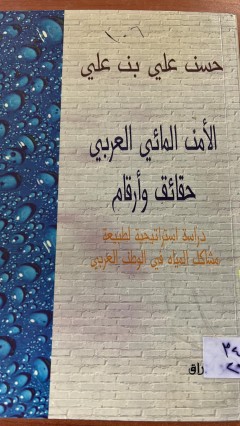 ١٠٦
حسن علي بن علي
الأمن المائي العربي
حقائق وأرقام
دراسة استراتيجية لطبيعة
مشاكل المياه في الوطن العربي